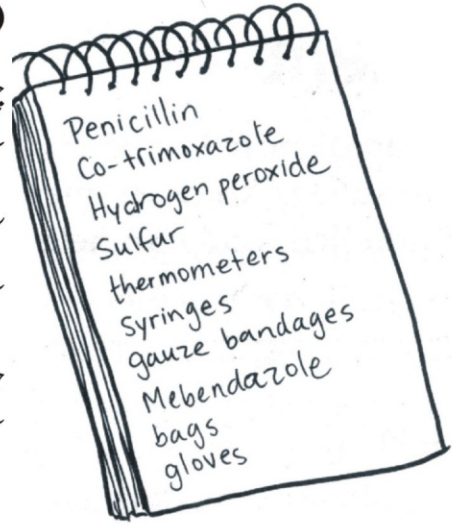 Penicillin
Co-trimoxazole
Hydrogen peroxide
Sulfur
thermometers
Syringes
gauze bandages
Mebendazole
bags
gloves